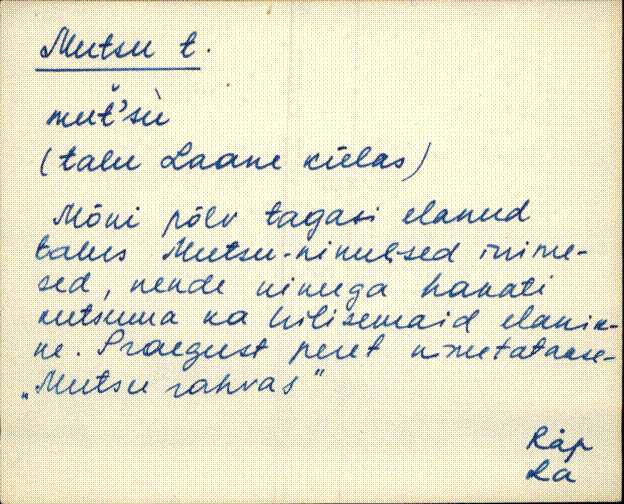 Mutsu t.
mŭt's̀ù
(talu Laane külas)
Mõni põlv tagasi elanud
talus Mutsu-nimelised inime-
sed, nende nimega hakati
kutsuma ka hilisemaid elanik-
ke. Praegust peret nimetatakse-
„Mutsu rahvas"
Räp
La